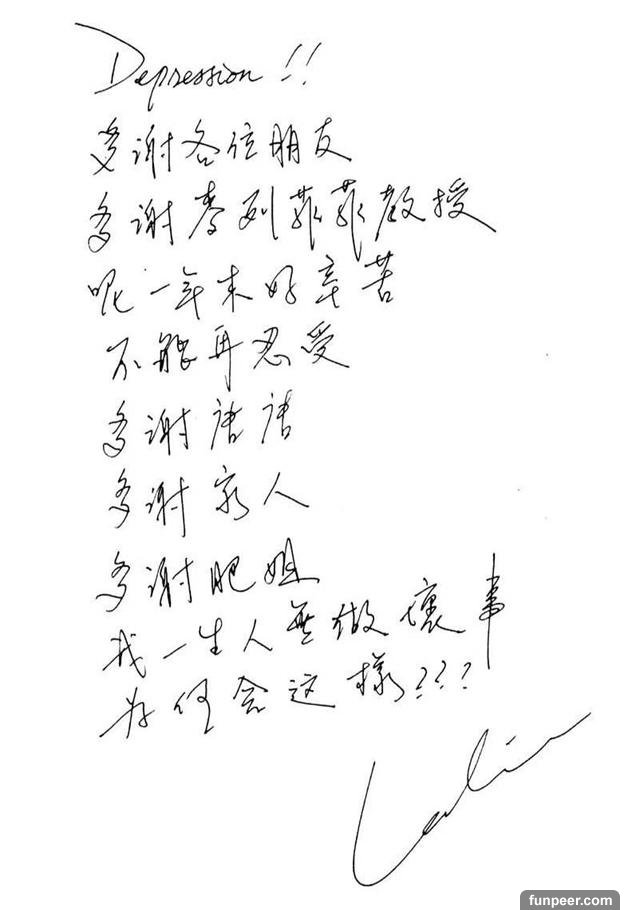 Depression !!
多谢各位朋友
多谢麦列菲菲教授
呢一年来好辛苦
不能再忍受
多谢唐唐
多谢家人
多谢肥姐
我一生人无做坏事
为何会这样???
Leslie
funpeer.com